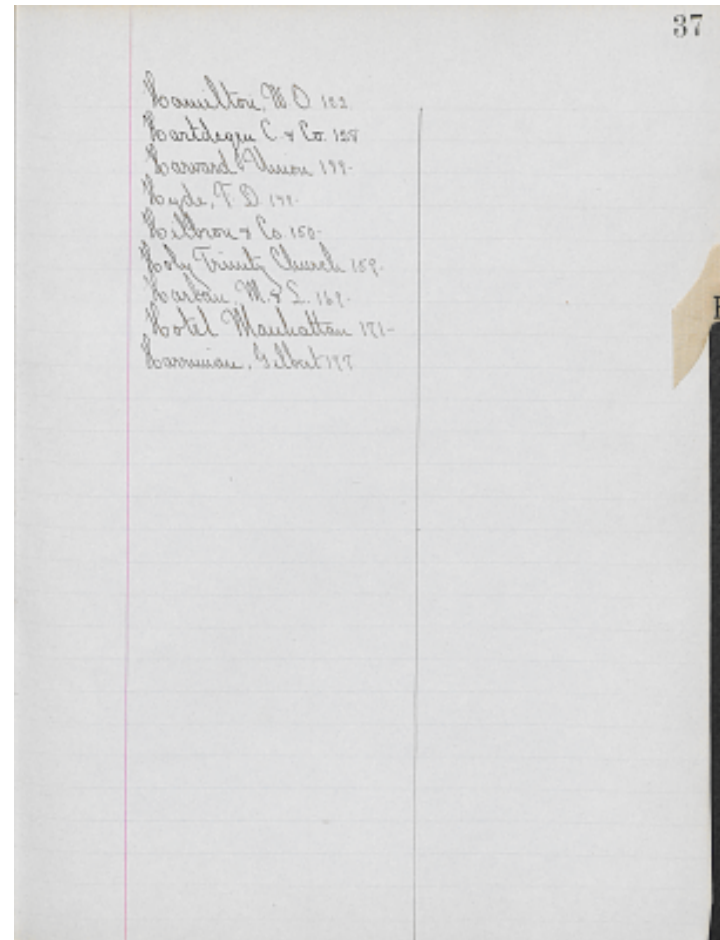 37
Hamilton, W. O. 122
Hartdegen C. & Co. 128
Harvard Union 199-
Hyde, F. D. 149-
Hilbron & Co. 150-
Holy Trinity Church 159-
Harbau, M. & L. 169-
Hotel Manhattan 171-
Harriman, Gilbert 177